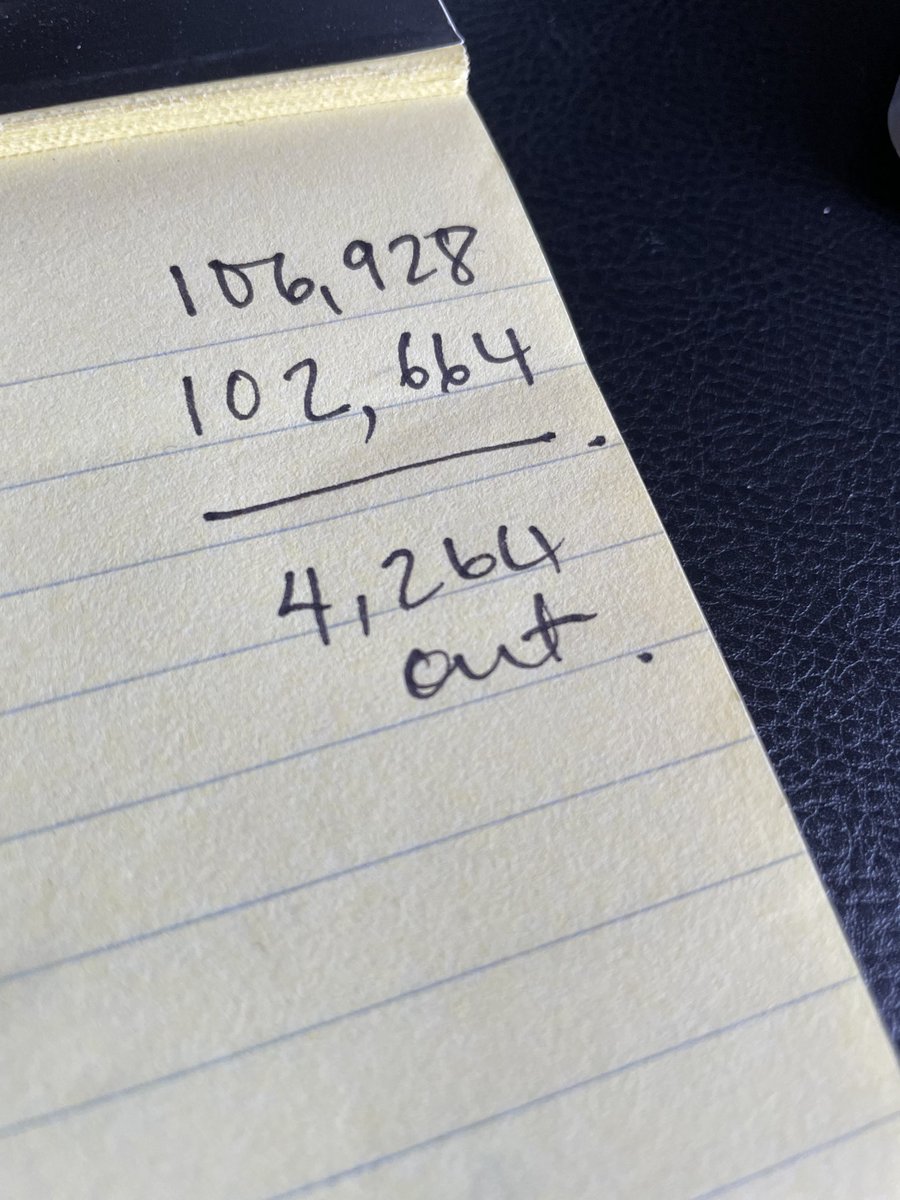 106,928
102,664
4,264
out.